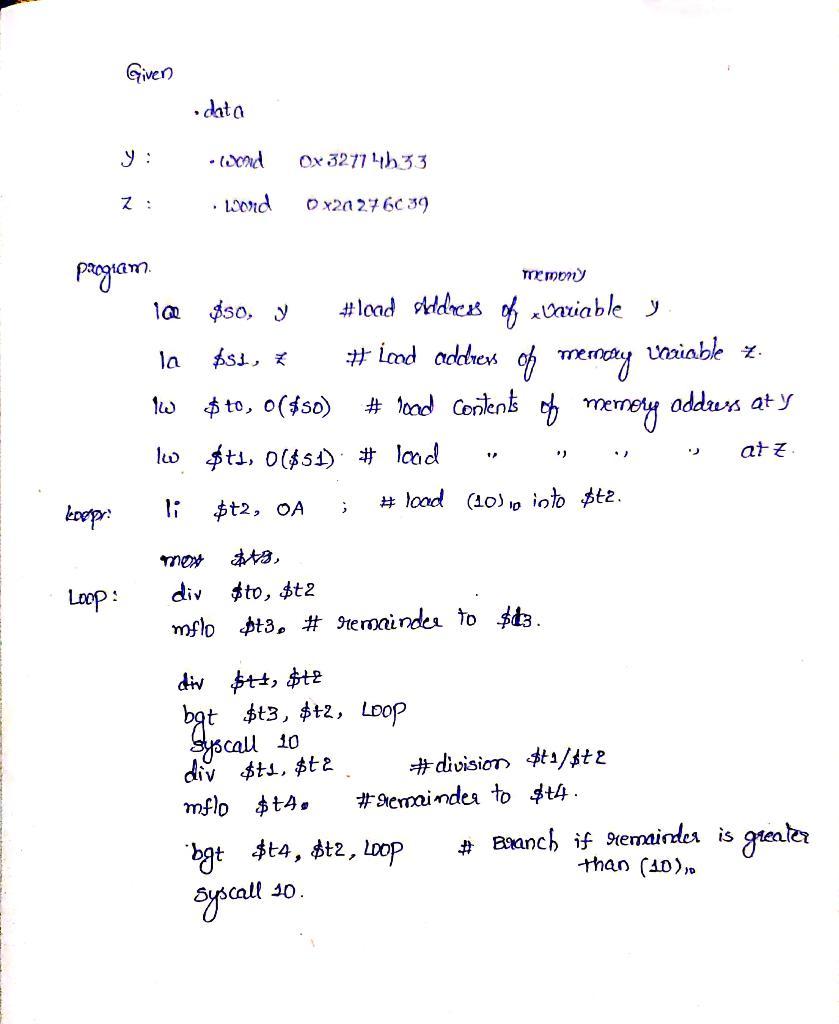 Given
.data
y : .word 0x32774b33
z : .word 0x2a276c39
program.
memory
la $s0, y #load Address of ‸variable y
la $s1, z # Load address of memory variable z.
lw $t0, 0($s0) # load contents of memory address at y
lw $t1, 0($s1) # load " " " " at z.
li $t2, 0A ; # load (10)10 into $t2.
Loop: div $t0, $t2
mflo $t3. # remainder to $t3.
div $t1, $t2
bgt $t3, $t2, LOOP
Syscall 10
div $t1, $t2 . #division $t1/$t2
mflo $t4. #remainder to $t4.
bgt $t4, $t2, LOOP # Branch if remainder is greater
than (10)10
Syscall 10.